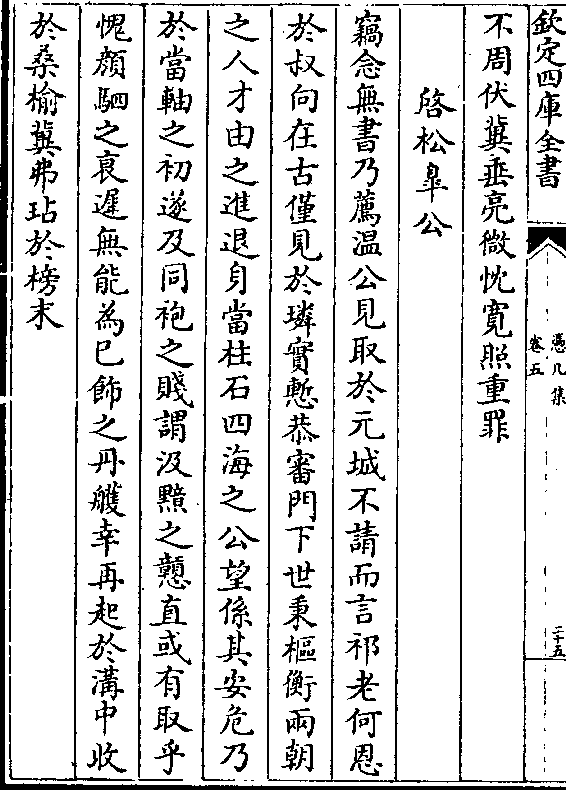 欽定四庫全書
憑几集
卷五
二十五
不周伏冀垂亮微忱寛照重罪
啓松臯公
竊念無書乃薦温公見取於元城不請而言祁老何恩
於叔向在古僅見於璘實慙恭審門下世秉樞衡兩朝
之人才由之進退身當柱石四海之公望係其安危乃
於當軸之初遂及同袍之賤謂汲黯之戇直或有取乎
愧顔駟之衰遲無能為巳飾之丹艧幸再起於溝中收
於桑榆冀弗玷於榜末